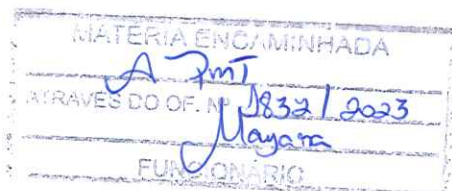 MATERIA ENCAMINHADA
A PMT
ATRAVES DO OF. Nº 1832 / 2023
Mayara
FUNCIONARIO